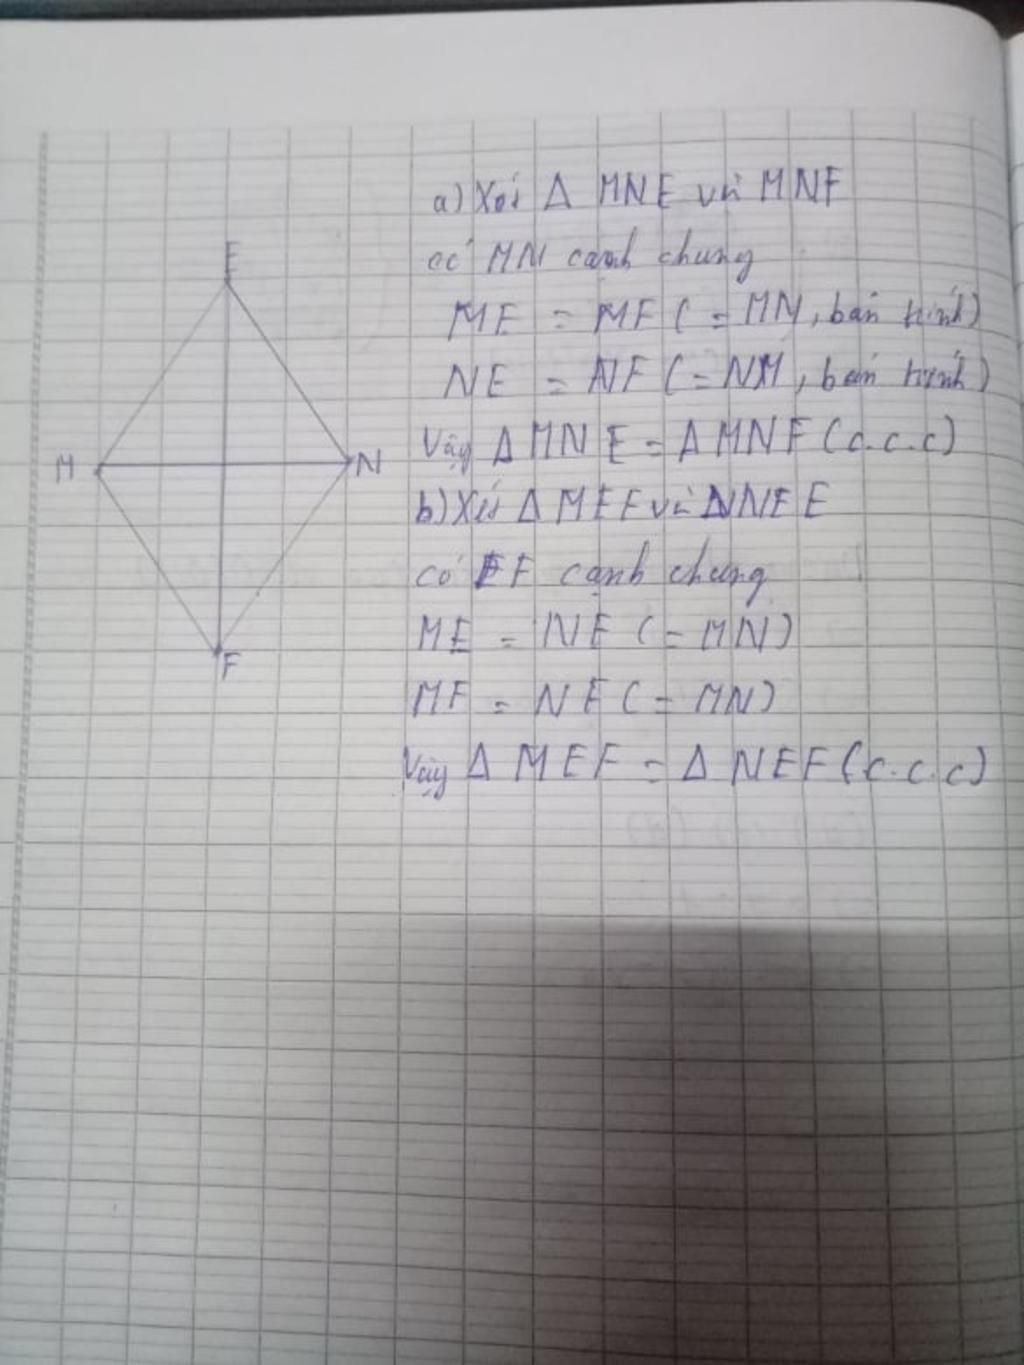 a) Xét Δ MNE và MNF
có MN cạnh chung
E
ME = MF (= MN, bán kính)
NE = NF (= NM, bán kính)
Vậy Δ MNE = Δ MNF (c.c.c)
M N
b) Xét Δ MEF và ΔNEF
có EF cạnh chung
ME = NE (= MN)
F
MF = NF (= MN)
Vậy Δ MEF = Δ NEF (c.c.c)